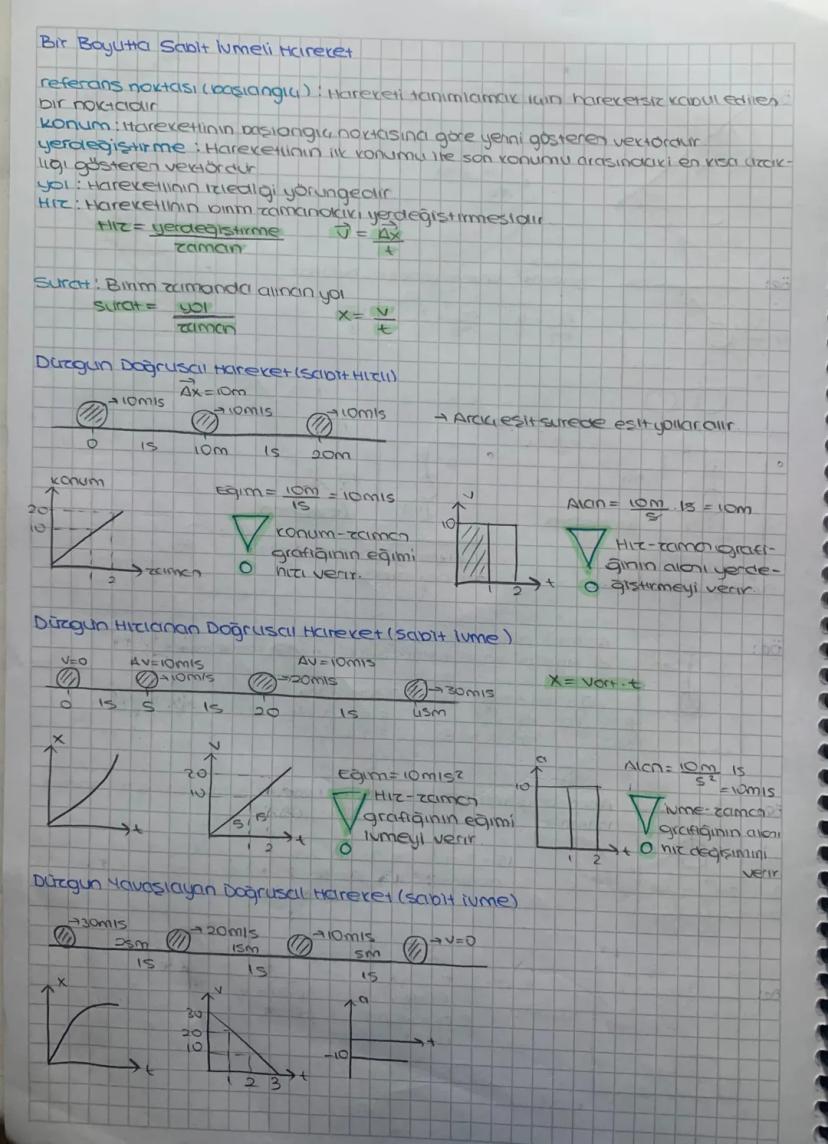 Bir Boyutta Sabit İvmeli Hareket
referans noktası (başlangıç) : Hareketi tanımlamak için hareketsiz kabul edilen
bir noktadır
konum : Hareketlinin başlangıç noktasına göre yerini gösteren vektördür
yerdeğiştirme : Hareketlinin ilk konumu ile son konumu arasındaki en kısa uzak-
lığı gösteren vektördür
yol : Hareketlinin izlediği yörüngedir
Hız : Hareketlinin birim zamandaki yerdeğiştirmesidir
Hız = yerdeğiştirme / zaman    V = Δx / t
Sürat : Birim zamanda alınan yol
sürat = yol / zaman    x = v / t
Düzgün Doğrusal Hareket (Sabit Hızlı)
Δx = 10m
→10m/s →10m/s →10m/s → Aracı, eşit sürede eşit yollar alır
0 1s 10m 1s 20m
konum
20
10
1 2 zaman
Eğim = 10m / 1s = 10m/s
konum-zaman
grafiğinin eğimi
hızı verir.
v
10
1 2 t
Alan = 10m/s . 1s = 10m
Hız-zaman grafi-
ğinin alanı yerde-
ğiştirmeyi verir
Düzgün Hızlanan Doğrusal Hareket (sabit ivme)
V=0 ΔV=10m/s →10m/s ΔV=10m/s →20m/s →30m/s x = Vort . t
0 1s 5 1s 20 1s 45m
x
t
v
20
10
5 15
1 2 t
Eğim = 10m/s²
Hız-zaman
grafiğinin eğimi
ivmeyi verir
a
10
1 2 t
Alan = 10m/s² 1s
= 10m/s
ivme-zaman
grafiğinin alanı
hız değişimini
verir
Düzgün Yavaşlayan Doğrusal Hareket (sabit ivme)
→30m/s →20m/s →10m/s → V=0
25m 15m 5m
1s 1s 1s
x
t
v
30
20
10
1 2 3 t
a
t
-10